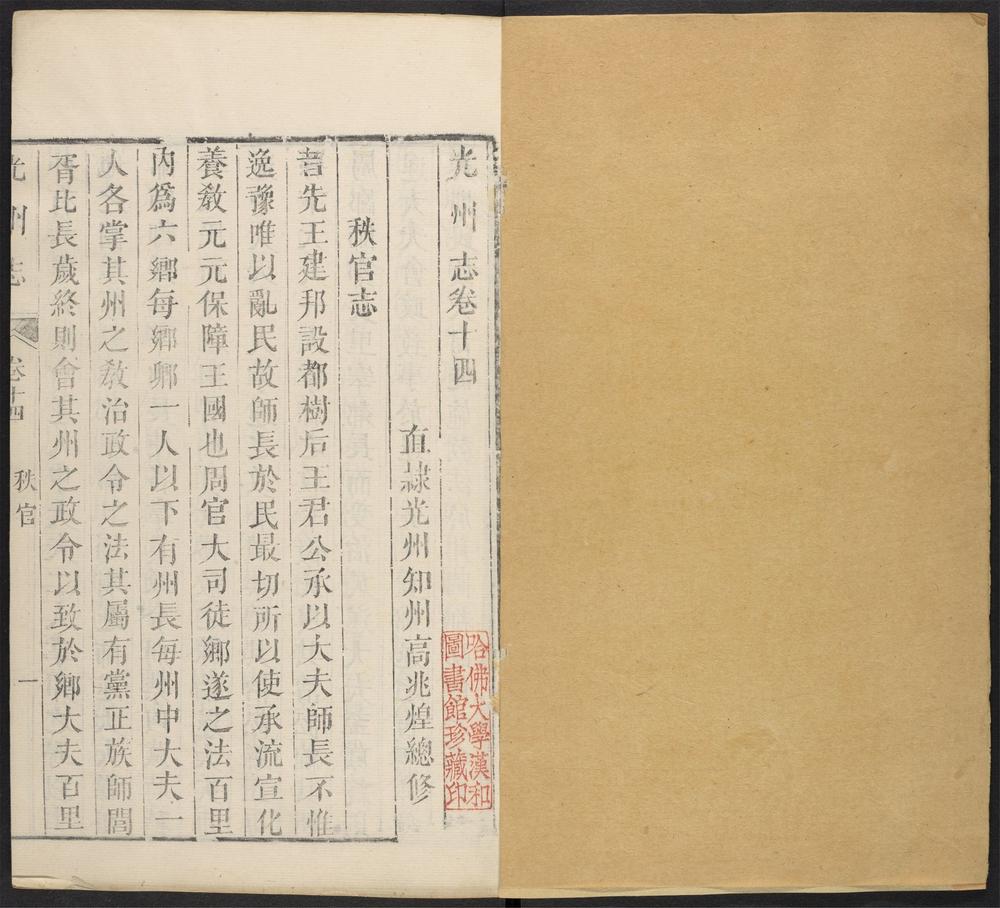 光州志卷十四
直隷光州知州高兆煌總修
秩官志
昔先王建邦設都樹后王君公承以大夫師長不惟
逸豫唯以亂民故師長於民最切所以使承流宣化
養教元元保障王國也周官大司徒鄉遂之法百里
內爲六鄉每鄉鄉一人以下有州長每州中大夫一
人各掌其州之教治政令之法其屬有黨正族師閭
胥比長歲終則會其州之政令以致於鄉大夫百里
光州志 卷十四 秩官 一
哈佛大學漢和
圖書館珍藏印